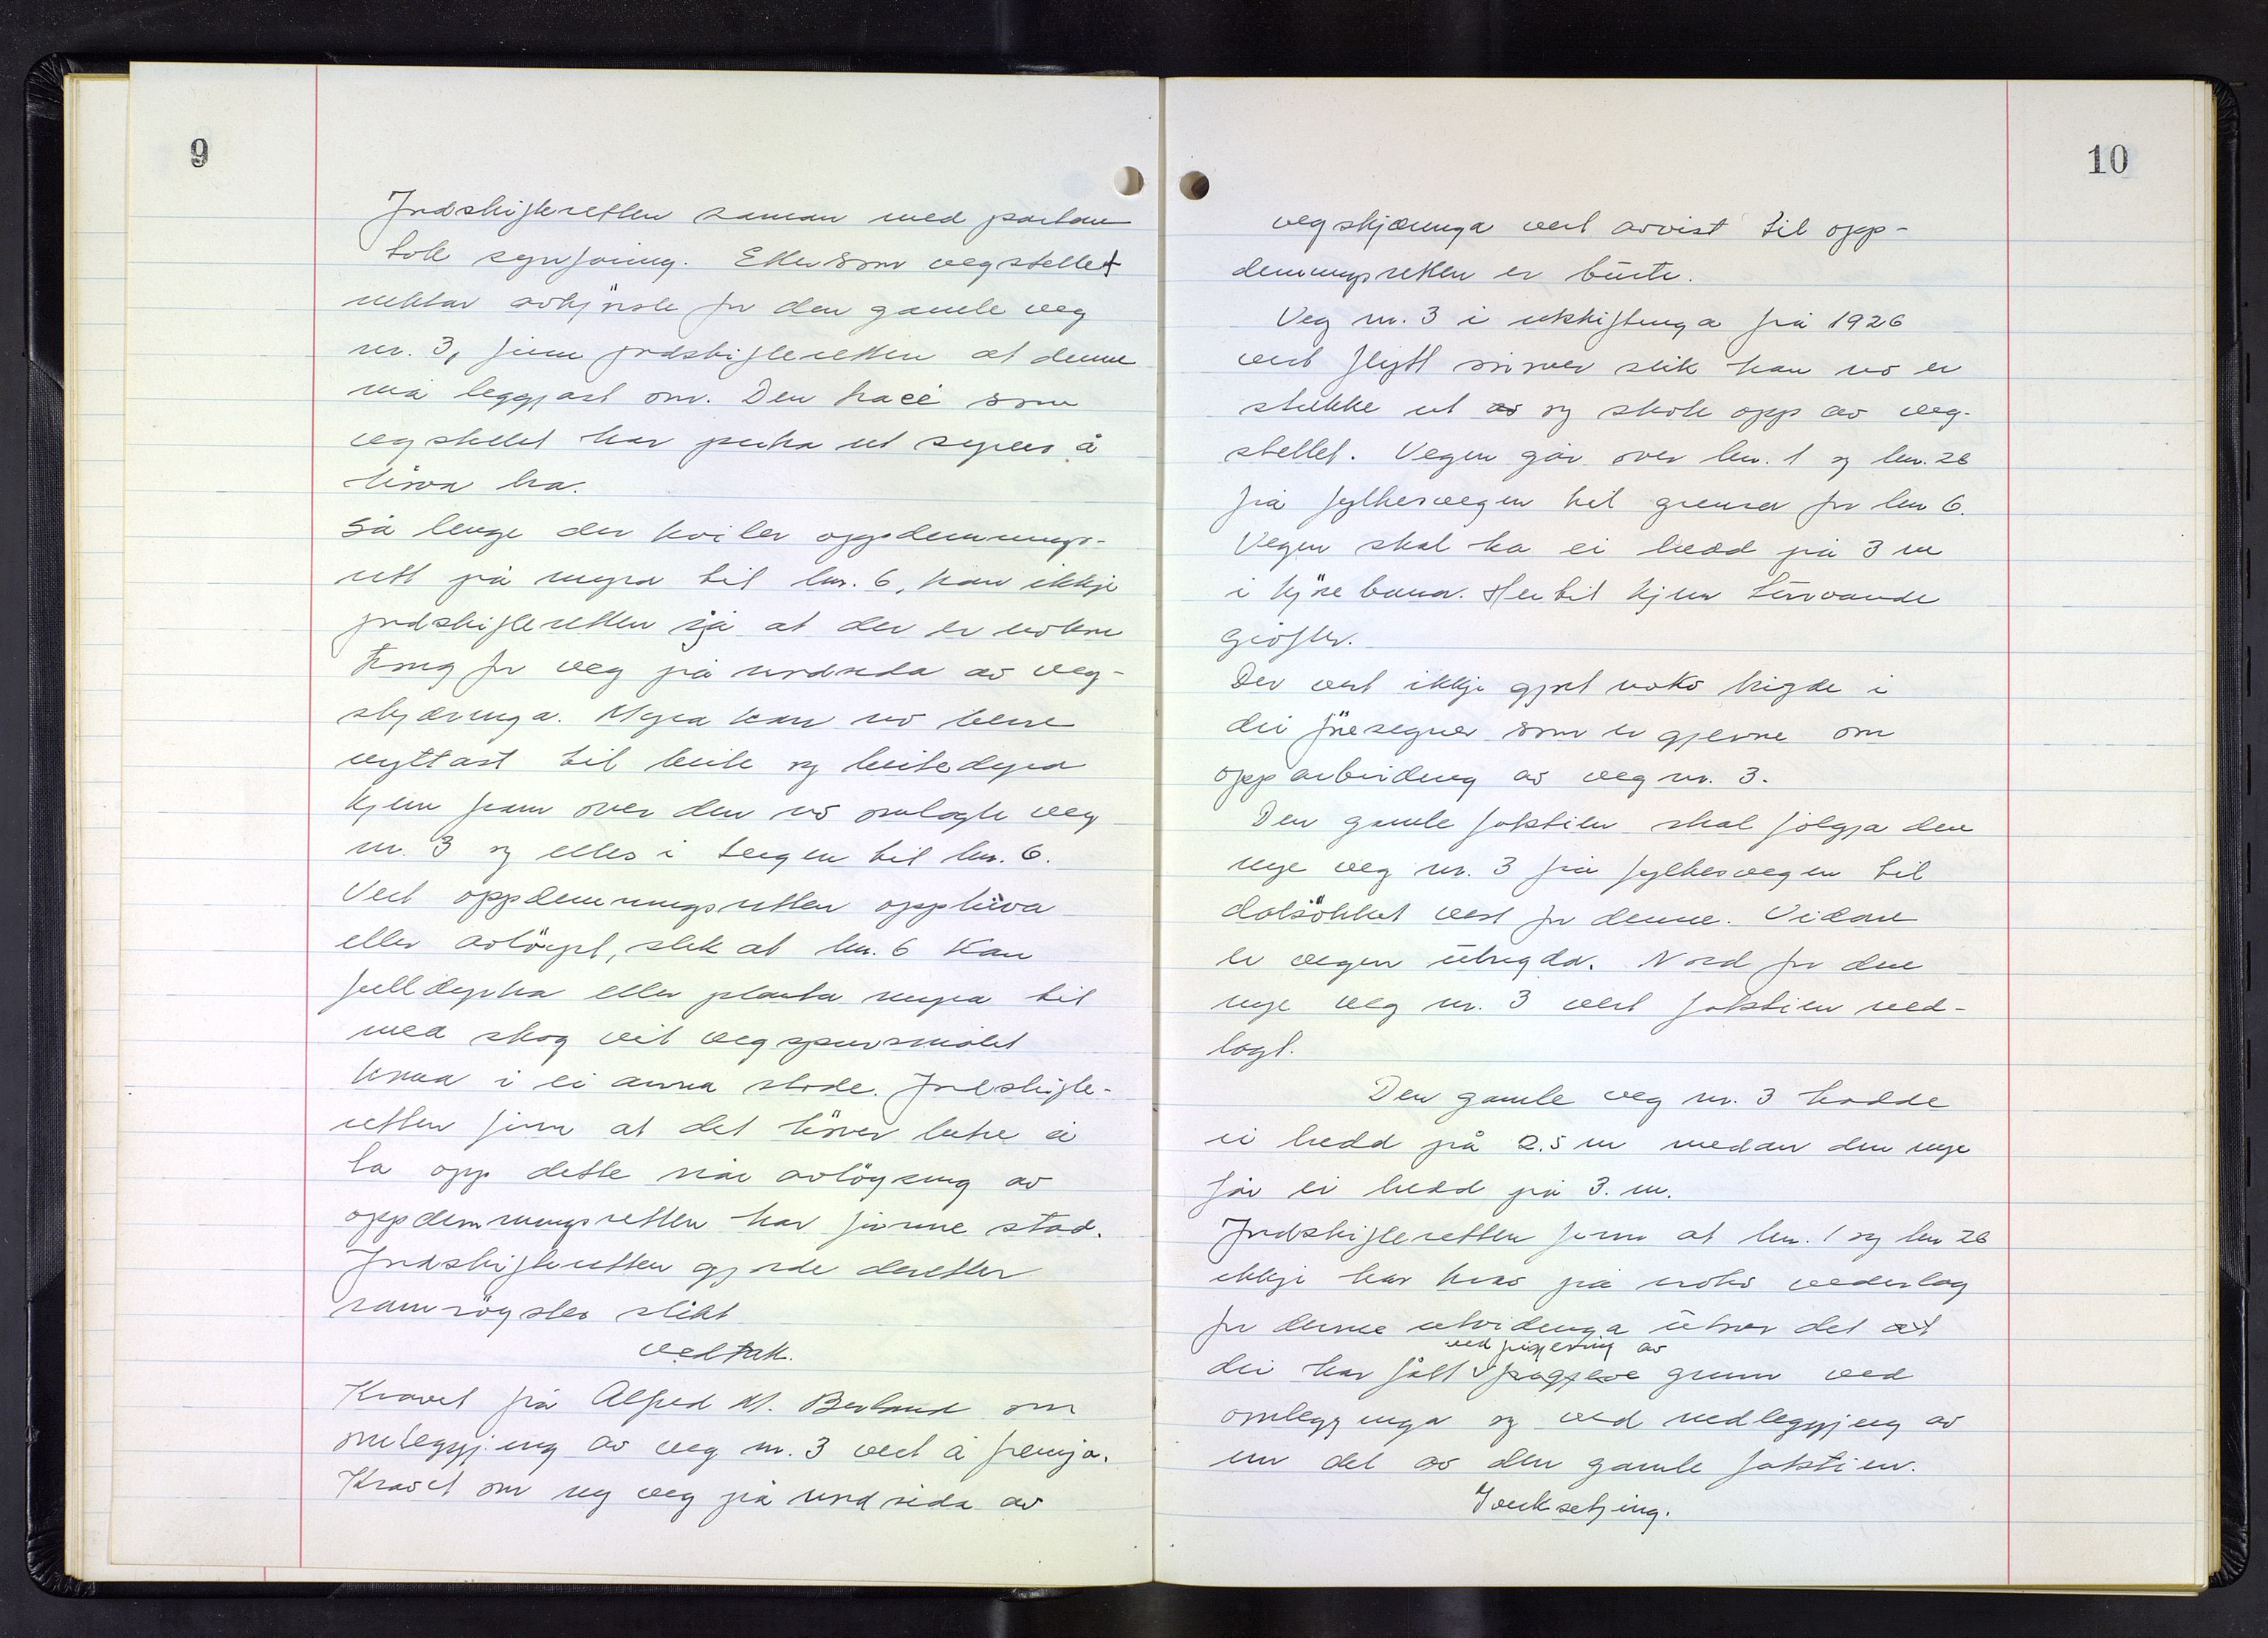 9
Jordskifteretten saman med partane
tok synfaring. Ettersom vegstellet
nektar avkjørsle for den gamle veg
nr. 3, finn jordskifteretten at denne
må leggjast om. Den tracé som
vegstellet har peika ut synes å
høva bra.
Så lenge der kviler oppdemmings-
rett på myra til bnr. 6, kan ikkje
jordskifteretten sjå at der er nokon
trong for veg på nordsida av veg-
skjæringa. Myra kan no berre
nyttast til beite og beitedyra
kjem fram over den no omlagte veg
nr. 3 og elles i teigen til bnr. 6.
Vert oppdemmingsretten oppheva
eller avløyst, slik at bnr. 6 kan
fulldyrka eller planta myra til
med skog vil vegspursmålet
koma i ei anna stode. Jordskifte-
retten finn at det høver betre å
ta opp dette når avløysing av
oppdemmingsretten har funne stad.
Jordskifteretten gjorde deretter
samrøystes slikt
vedtak.
Kravet frå Alfred M. Berland om
omleggjing av veg nr. 3 vert å fremja.
Kravet om ny veg på nordsida av
10
vegskjæringa vert avvist til opp-
demmingsretten er borte.
Veg nr. 3 i utskiftinga frå 1926
vert flytt sørover slik han no er
stukke ut og skote opp av veg-
stellet. Vegen går over bnr. 1 og bnr. 26
frå fylkesvegen til grensa for bnr 6.
Vegen skal ha ei breidd på 3 m
i kjørebana. Hertil kjem turvande
grøfter.
Der vert ikkje gjort noko brigde i
dei føresegner som er gjevne om
opparbeiding av veg nr. 3.
Den gamle fotstien skal følgja den
nye veg nr. 3 frå fylkesvegen til
dalsøkket vest for denne. Vidare
er vegen ubrigda. Nord for den
nye veg nr. 3 vert fotstien ned-
lagt.
Den gamle veg nr. 3 hadde
ei breidd på 2.5 m medan den nye
får ei breidd på 3. m.
Jordskifteretten finn at bnr. 1 og bnr 26
ikkje har krav på noko vederlag
for denne utvidinga utover det at
ved frigjering av
dei har fått grunn ved
omlegginga og ved nedleggjing av
ein del av den gamle fotstien.
Iverksetjing.